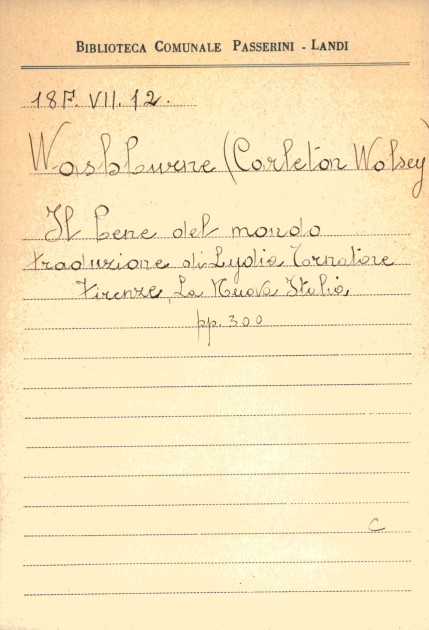 BIBLIOTECA COMUNALE PASSERINI - LANDI
18F. VII. 12.
Washburne (Carleton Wolsey)
Il bene del mondo
traduzione di Lydia Tornatore
Firenze, La Nuova Italia
pp. 300
C